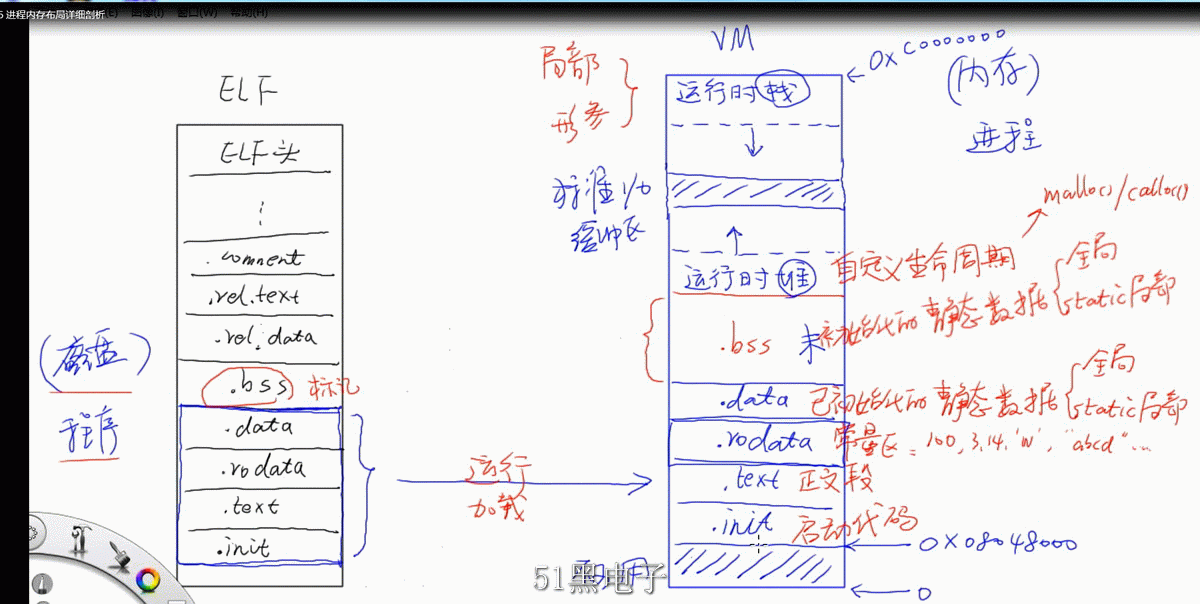 5 进程内存布局详细剖析
ELF
ELF头
.comment
.rel.text
.rel.data
.bss
标记
.data
.rodata
.text
.init
(磁盘)
程序
运行
加载
VM
0xC0000000
(内存)
进程
局部
形参
运行时栈
标准I/O
缓冲区
运行时堆
自定义生命周期
malloc()/calloc()
.bss
未初始化的静态数据
全局
static局部
.data
已初始化的静态数据
全局
static局部
.rodata
常量区: 100, 3.14, 'w', "abcd"...
.text
正文段
.init
启动代码
0x08048000
0
51黑电子